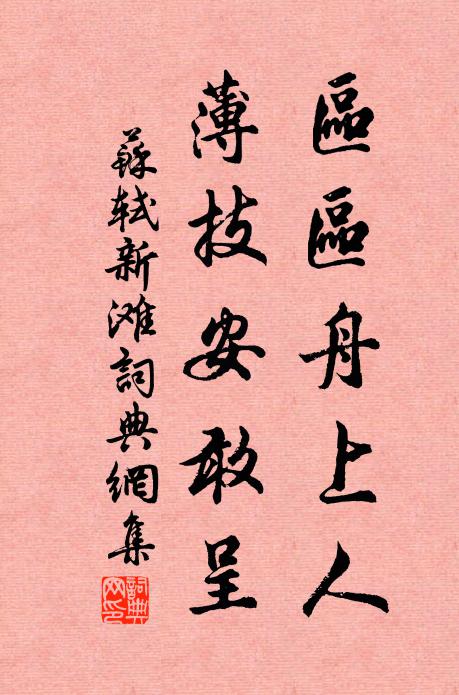 區區舟上人
薄技安敢呈
蘇軾新滩詞典網集
詞典網印